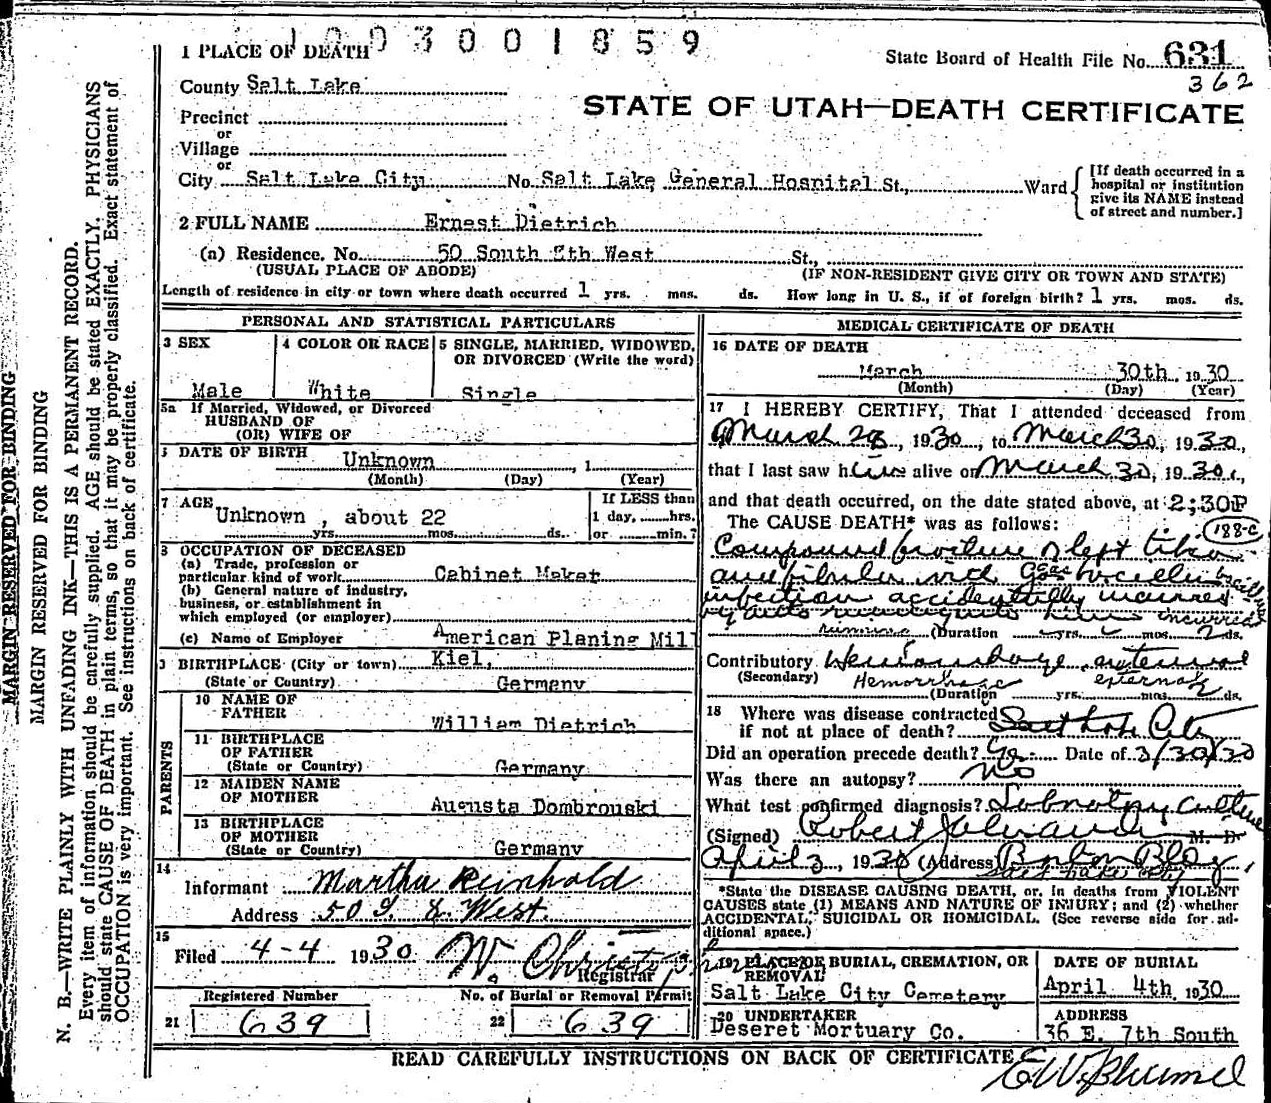 1003001859
1 PLACE OF DEATH
State Board of Health File No. 631
362
County Salt Lake
STATE OF UTAH—DEATH CERTIFICATE
Precinct
or
Village
or
City Salt Lake City No. Salt Lake General Hospital St., Ward
[If death occurred in a hospital or institution give its NAME instead of street and number.]
2 FULL NAME Ernest Dietrich
(a) Residence, No. 50 South 8th West St.,
(USUAL PLACE OF ABODE) (IF NON-RESIDENT GIVE CITY OR TOWN AND STATE)
Length of residence in city or town where death occurred 1 yrs. mos. ds. How long in U. S., if of foreign birth? 1 yrs. mos. ds.
PERSONAL AND STATISTICAL PARTICULARS
3 SEX
Male
4 COLOR OR RACE
White
5 SINGLE, MARRIED, WIDOWED,
OR DIVORCED (Write the word)
Single
5a If Married, Widowed, or Divorced
HUSBAND OF
(OR) WIFE OF
DATE OF BIRTH Unknown , 1
(Month) (Day) (Year)
7 AGE
Unknown , about 22
yrs. mos. ds.
If LESS than
1 day, hrs.
or min.?
8 OCCUPATION OF DECEASED
(a) Trade, profession or
particular kind of work Cabinet Maker
(b) General nature of industry,
business, or establishment in
which employed (or employer)
(c) Name of Employer American Planing Mill
BIRTHPLACE (City or town) Kiel,
(State or Country) Germany
PARENTS
10 NAME OF
FATHER William Dietrich
11 BIRTHPLACE
OF FATHER
(State or Country) Germany
12 MAIDEN NAME
OF MOTHER Augusta Dombrouski
13 BIRTHPLACE
OF MOTHER
(State or Country) Germany
14
Informant Martha Reinhold
Address 50 S. 8 West.
15
Filed 4-4 1930 W. Christopherson
Registrar
Registered Number
21 639
No. of Burial or Removal Permit
22 639
MEDICAL CERTIFICATE OF DEATH
16 DATE OF DEATH
March 30th 1930
(Month) (Day) (Year)
17 I HEREBY CERTIFY, That I attended deceased from
March 28, 1930, to March 30, 1930,
that I last saw him alive on March 30, 1930,
and that death occurred, on the date stated above, at 2:30P
The CAUSE DEATH* was as follows:
188-c
Compound fracture of left tibia
and fibula with Gas bacillus bacillus
infection accidentally incurred
by auto running into him incurred
running (Duration yrs. mos. 2 ds.
Contributory Hemorrhage, external
(Secondary) Hemorrhage external
(Duration yrs. mos. 2 ds.
18 Where was disease contracted
if not at place of death? Salt Lake City
Did an operation precede death? Yes Date of 3/30/30
Was there an autopsy? No
What test confirmed diagnosis? Laboratory Culture
(Signed) Robert M. D.
April 3, 1930 (Address) Boston Bldg,
Salt Lake City
*State the DISEASE CAUSING DEATH, or, in deaths from VIOLENT
CAUSES state (1) MEANS AND NATURE OF INJURY; and (2) whether
ACCIDENTAL, SUICIDAL OR HOMICIDAL. (See reverse side for additional space.)
19 PLACE OF BURIAL, CREMATION, OR
REMOVAL
Salt Lake City Cemetery
DATE OF BURIAL
April 4th 1930
20 UNDERTAKER
Deseret Mortuary Co.
ADDRESS
36 E. 7th South
READ CAREFULLY INSTRUCTIONS ON BACK OF CERTIFICATE
MARGIN RESERVED FOR BINDING
MARGIN RESERVED FOR BINDING
N. B.—WRITE PLAINLY WITH UNFADING INK—THIS IS A PERMANENT RECORD.
Every item of information should be carefully supplied. AGE should be stated EXACTLY. PHYSICIANS
should state CAUSE OF DEATH in plain terms, so that it may be properly classified. Exact statement of
OCCUPATION is very important. See instructions on back of certificate.